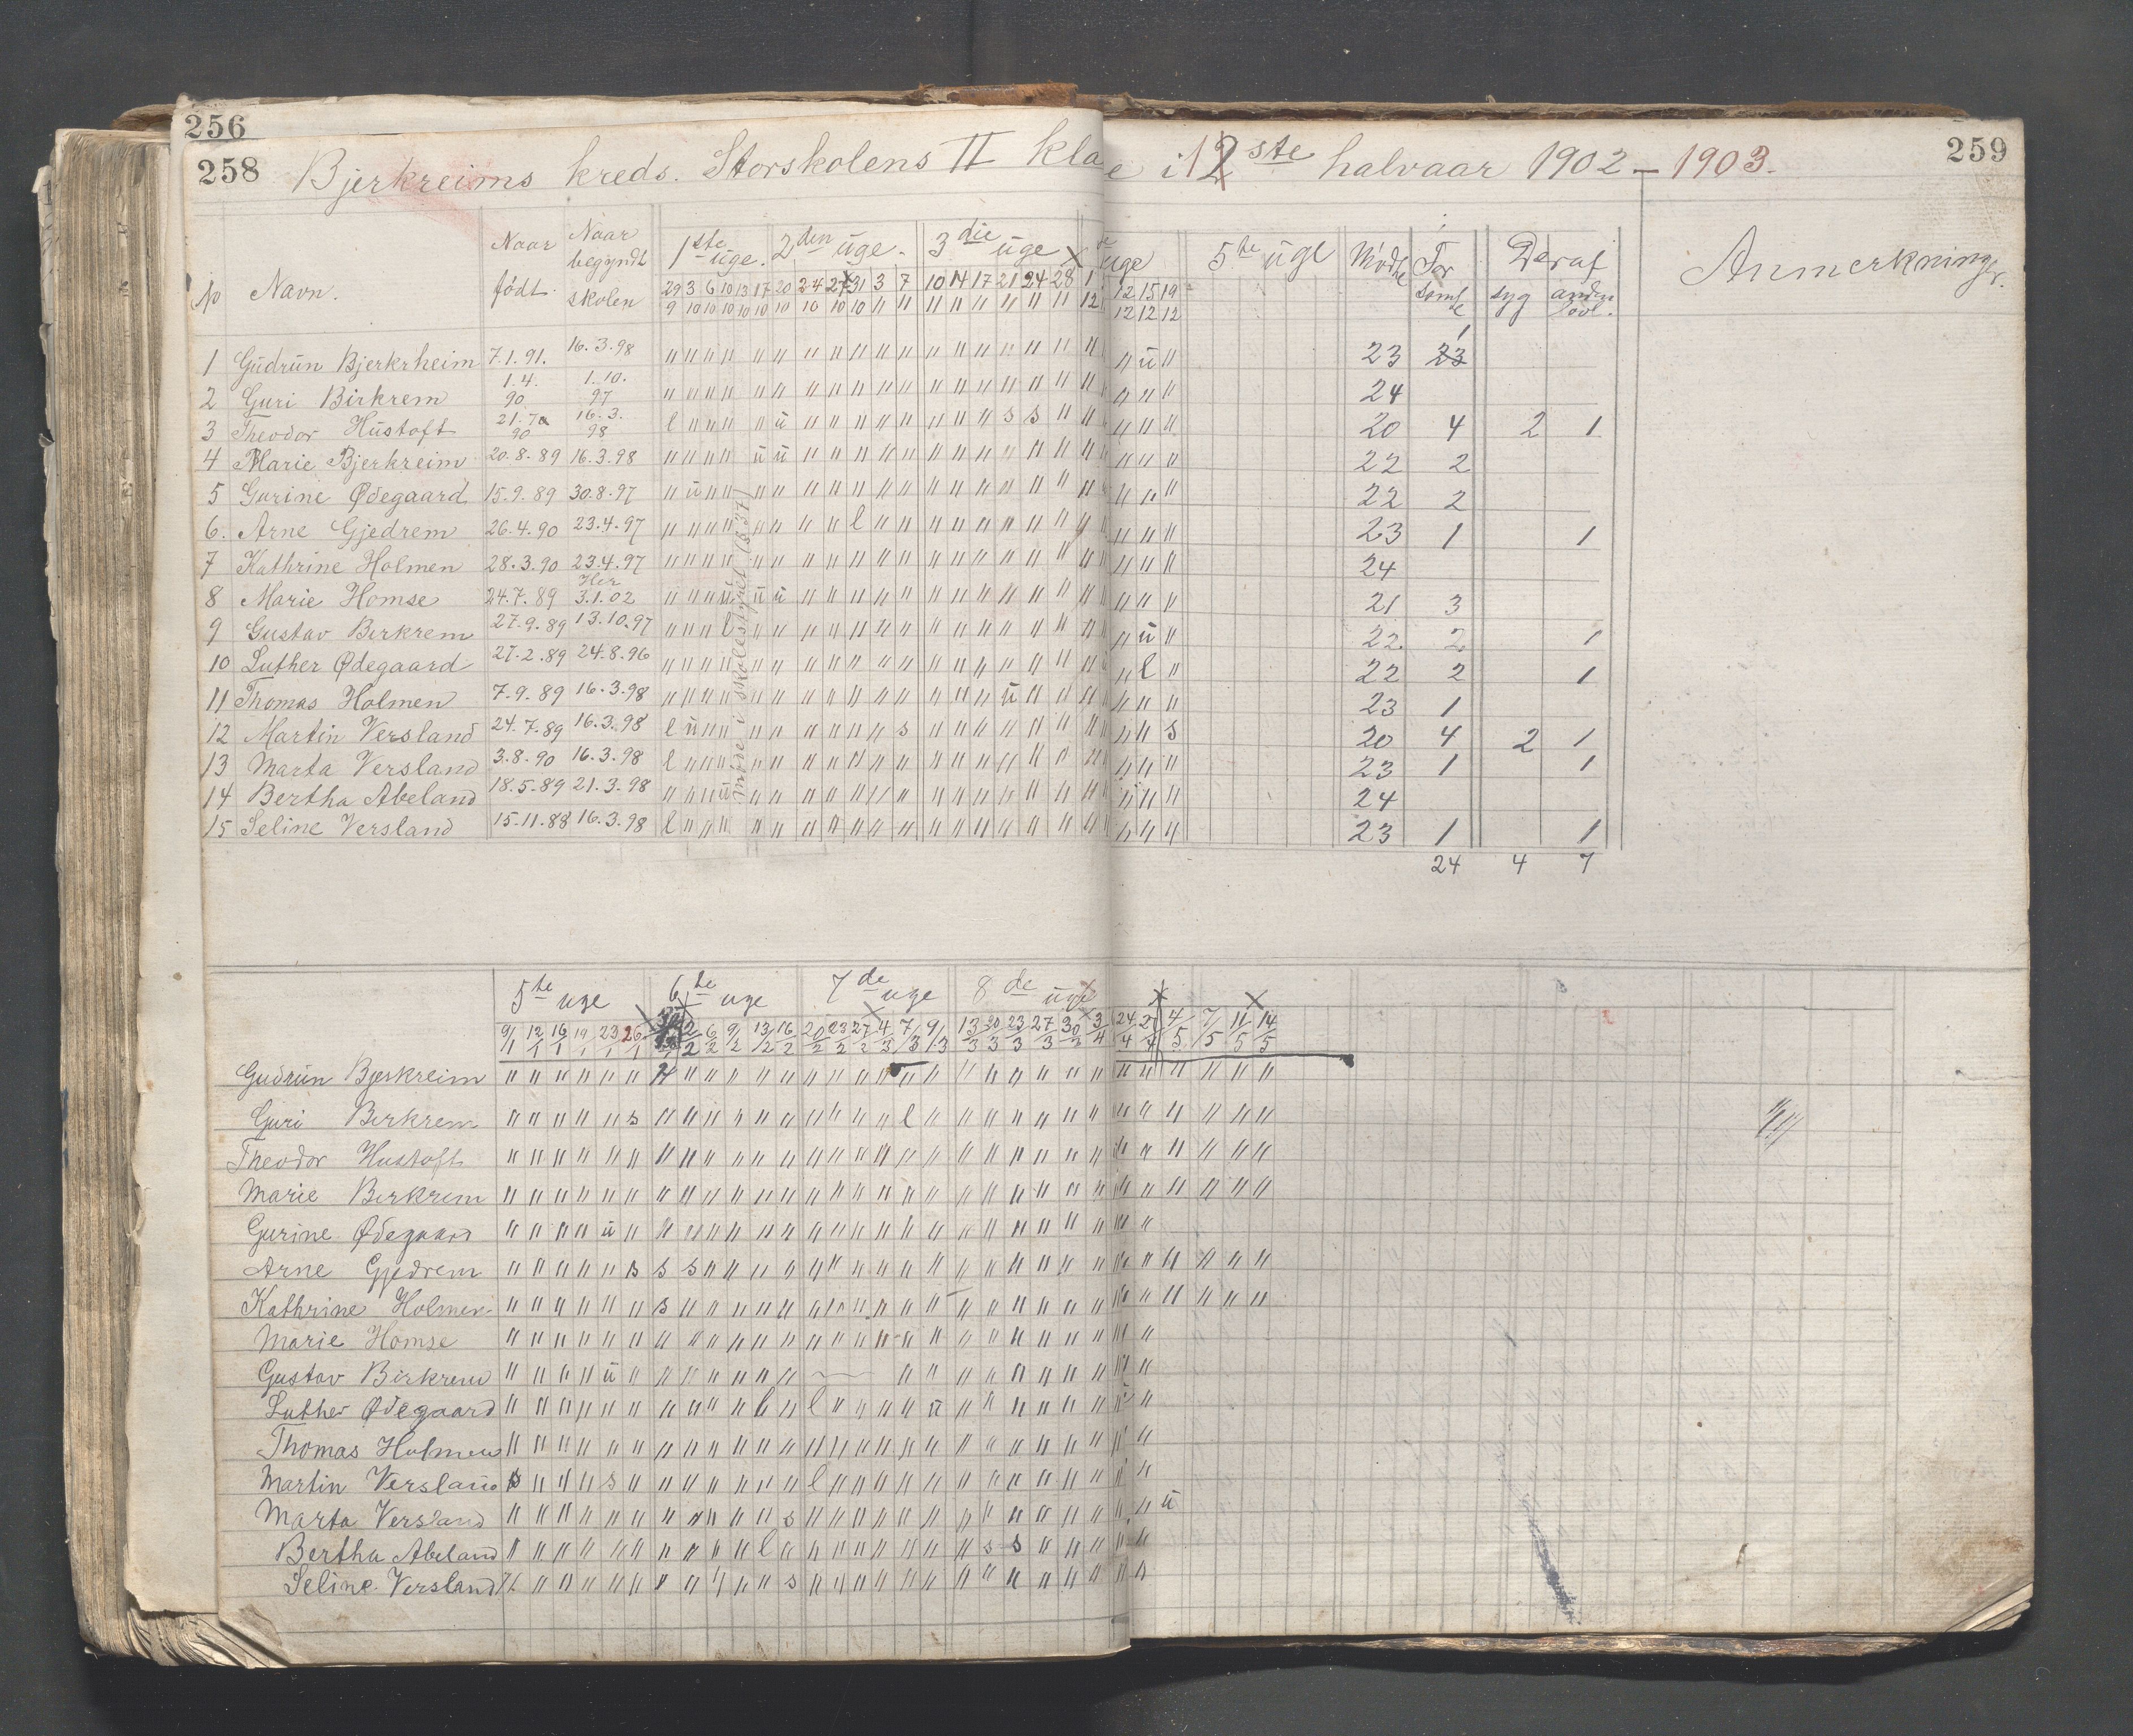 256
258 Bjerkreims kreds. Storskolens II kla e i 1 2 ste halvaar 1902 – 1903. 259
No Navn. Naar født. Naar begyndt skolen 1ste uge. 2den uge. 3die uge uge 5te uge Mødte For sømte Deraf syg anden lovl. Anmerkninger.
29 3 6 10 13 17 20 24 27 31 3 7 10 14 17 21 24 28 1 12 15 19
9 10 10 10 10 10 10 10 10 10 11 11 11 11 11 11 11 11 12 12 12 12
1 Gudrun Bjerkrheim 7.1.91. 16.3.98 23 23 1
2 Guri Birkrem 1.4.90 1.10.97 24
3 Theodor Hustoft 21.7.90 16.3.98 20 4 2 1
4 Marie Bjerkreim 20.8.89 16.3.98 22 2
5 Gurine Ødegaard 15.9.89 30.8.97 22 2
6. Arne Gjedrem 26.4.90 23.4.97 23 1 1
7 Kathrine Holmen 28.3.90 23.4.97 24
8 Marie Homse 24.7.89 Her 3.1.02 21 3
9 Gustav Birkrem 27.9.89 13.10.97 22 2 1
10 Luther Ødegaard 27.2.89 24.8.96 22 2 1
11 Thomas Holmen 7.9.89 16.3.98 23 1
12 Martin Versland 24.7.89 16.3.98 20 4 2 1
13 Marta Versland 3.8.90 16.3.98 23 1 1
14 Bertha Abeland 18.5.89 21.3.98 24
15 Seline Versland 15.11.88 16.3.98 23 1 1
24 4 7
Møde i skolestyret
5te uge 6te uge 7de uge 8de uge
9/1 12/1 16/1 19/1 23/1 26/1 2/2 6/2 9/2 13/2 16/2 20/2 23/2 27/2 4/3 7/3 9/3 13/3 20/3 23/3 27/3 30/3 3/4 24/4 27/4 4/5 7/5 11/5 14/5
Gudrun Bjerkreim
Guri Birkrem
Theodor Hustoft
Marie Birkrem
Gurine Ødegaard
Arne Gjedrem
Kathrine Holmen
Marie Homse
Gustav Birkrem
Luther Ødegaard
Thomas Holmen
Martin Versland
Marta Versland
Bertha Abeland
Seline Versland